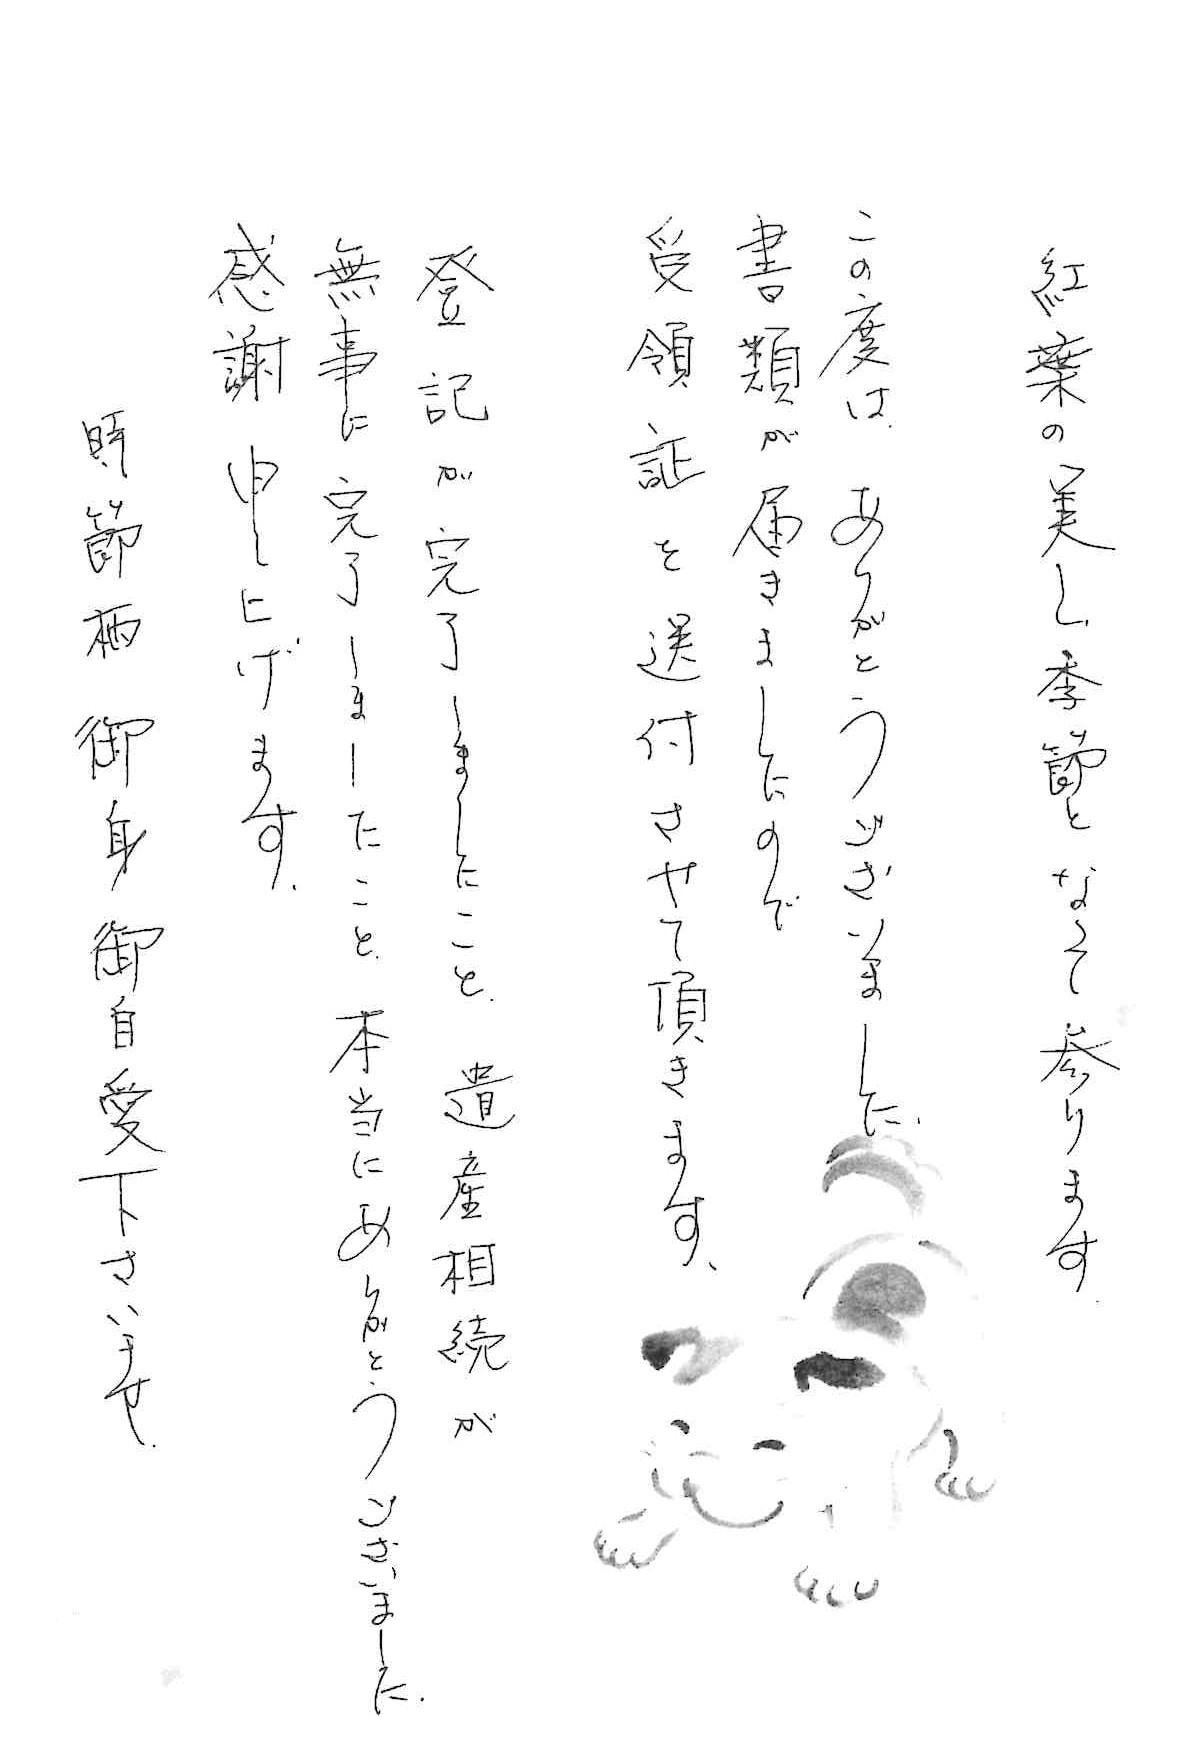 紅葉の美しい季節となって参ります。
この度は、ありがとうございました。
書類が届きましたので
受領証を送付させて頂きます。
登記が完了しましたこと、遺産相続が
無事に完了しましたこと、本当にありがとうございました。
感謝申し上げます。
時節柄御身御自愛下さいませ。